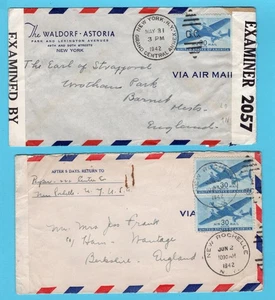 The WALDORF·ASTORIA
PARK AND LEXINGTON AVENUES
49TH AND 50TH STREETS
NEW YORK
NEW YORK, N.Y.
GRAND CENTRAL ANNEX
MAY 31
3 PM
1942
EXAMINED BY
EXAMINER 2057
VIA AIR MAIL
The Earl of Strafford
Wrotham Park
Barnet
Herts.
England
AFTER 5 DAYS, RETURN TO
New Rochelle N.Y. U.S.A.
VIA AIR MAIL
30
30
NEW ROCHELLE
JUN 2
1942
N.Y.
Mrs Jess Frank
Wantage
Berkshire
England